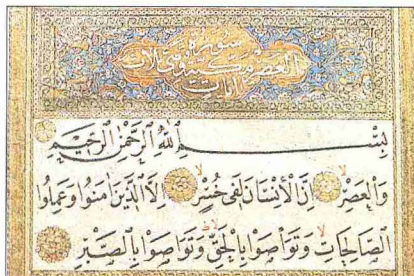 سورة
العصر مكية وهي ثلاث
آيات
بِسْمِ اللّٰهِ الرَّحْمٰنِ الرَّحِيْمِ
وَالْعَصْرِ اِنَّ الْاِنْسَانَ لَفٖى خُسْرٍ اِلَّا الَّذٖينَ اٰمَنُوا وَعَمِلُوا
الصَّالِحَاتِ وَتَوَاصَوْا بِالْحَقِّ وَتَوَاصَوْا بِالصَّبْرِ